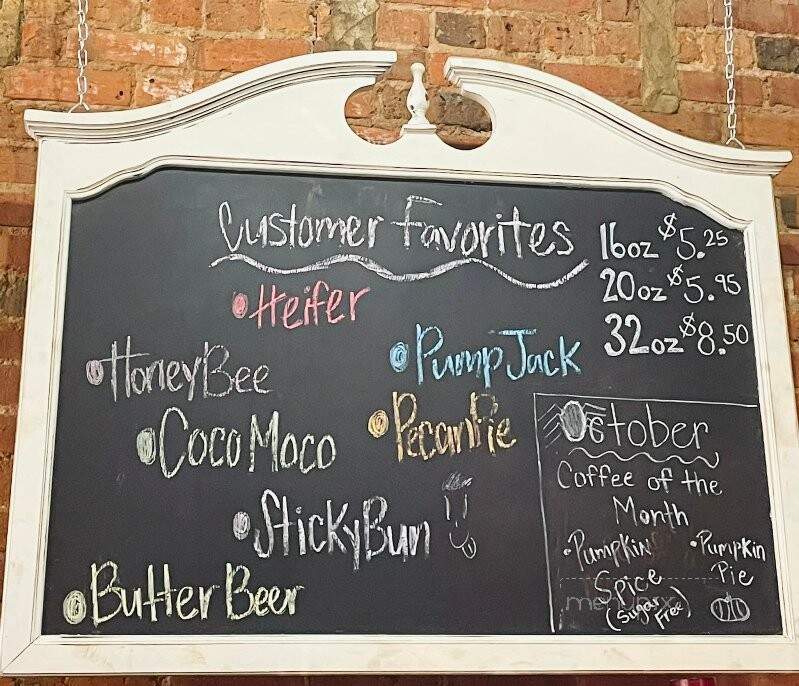 Customer Favorites
16oz $5.25
20oz $5.95
32oz $8.50
Heifer
HoneyBee
PumpJack
CocoMoco
PecanPie
StickyBun
ButterBeer
October
Coffee of the
Month
Pumpkin
Spice
(Sugar
Free)
Pumpkin
Pie
menupix